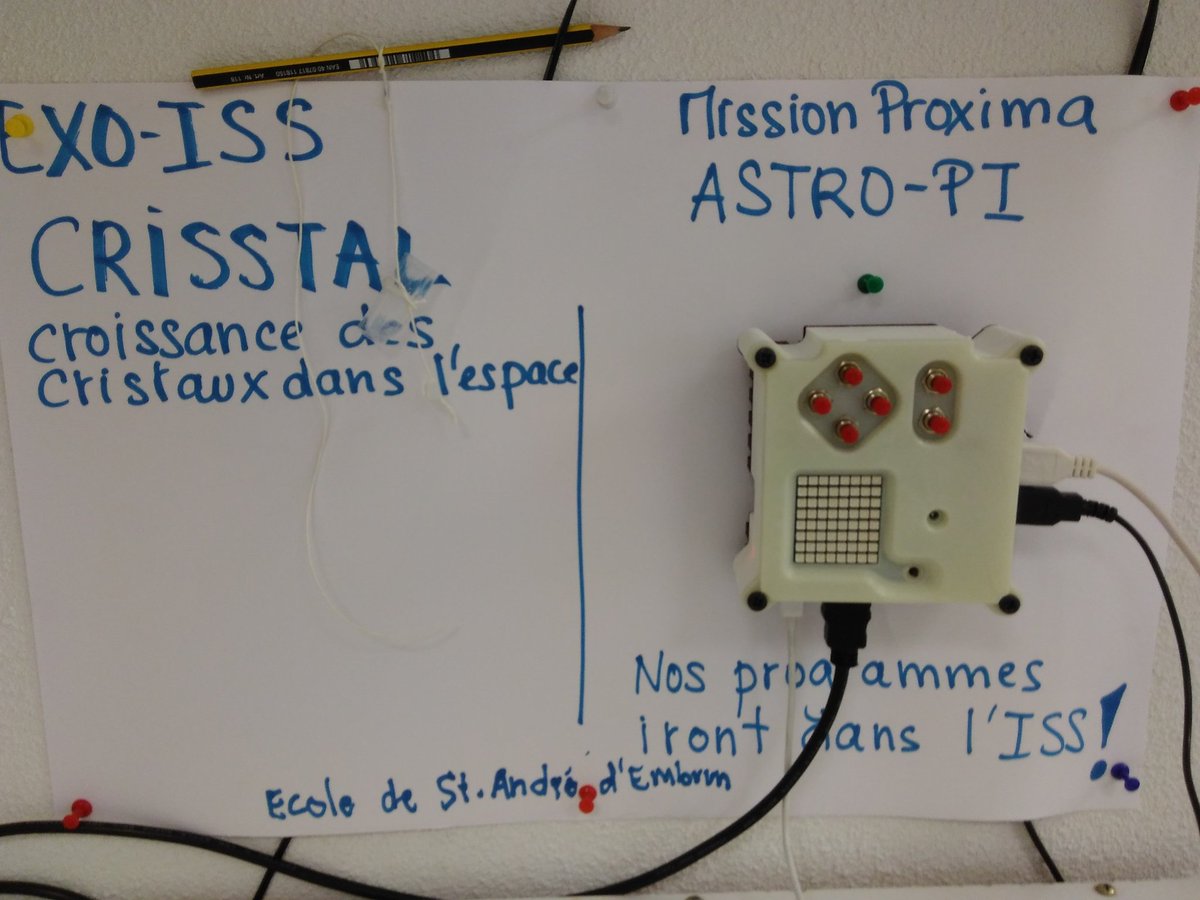 EXO-ISS
CRiSSTAL
croissance des
cristaux dans l'espace
Mission Proxima
ASTRO-PI
Nos programmes
iront dans l'ISS!
Ecole de St. André d'Embrun